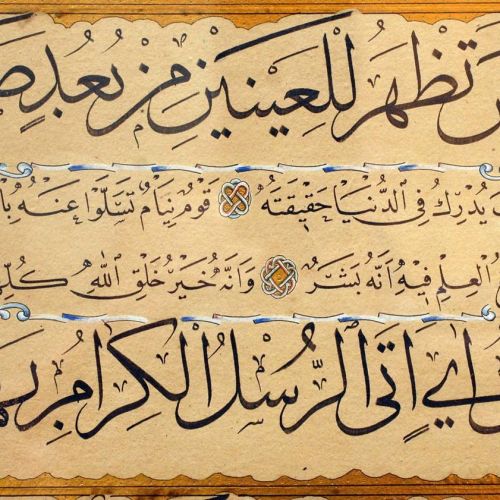 تَظْهَرُ لِلْعَيْنَيْنِ مِنْ بُعُدٍ
يُدْرِكُ فِي الدُّنْيَا حَقِيقَتَهُ قَوْمٌ نِيَامٌ تَسَلَّوْا عَنْهُ
الْعِلْمِ فِيهِ أَنَّهُ بَشَرٌ وَأَنَّهُ خَيْرُ خَلْقِ اللهِ كُلِّ
اٰيٍ اَتَى الرُّسْلُ الْكِرَامُ بِهَا